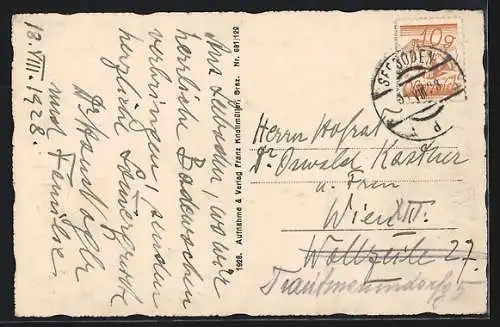 13. VIII. 1928.
Aus Seeboden, wo wir
herrliche Badewochen
verbringen, senden
herzliche Sommergrüße
Dr Hans
und Familie.
1928. Aufnahme & Verlag Franz Knollmüller, Graz. Nr. 691/129
10g
SEEBODEN
Herrn Hofrat
Dr. Oswald Kastner
u. Frau
Wien
Wollzeile 27.
Trauttmansdorffg